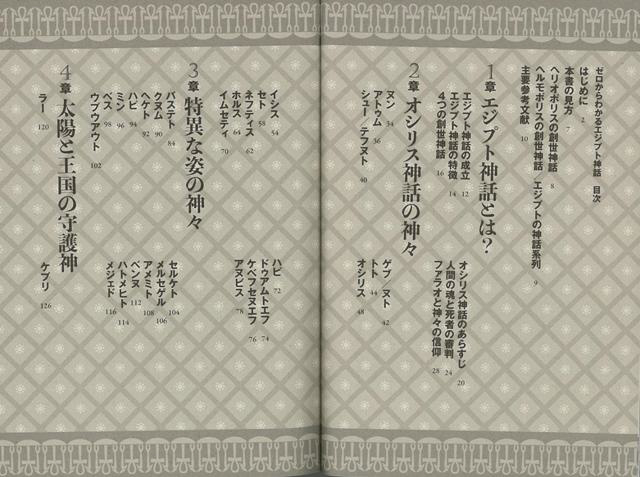 ゼロからわかるエジプト神話 目次
はじめに 2
本書の見方 7
ヘリオポリスの創世神話 8
ヘルモポリスの創世神話／エジプトの神話系列 9
主要参考文献 10
1章 エジプト神話とは？
エジプト神話の成立 12
エジプト神話の特徴 14
4つの創世神話 16
オシリス神話のあらすじ 20
人間の魂と死者の審判 24
ファラオと神々の信仰 28
2章 オシリス神話の神々
ヌン 34
アトゥム 36
シュー／テフヌト 40
ゲブ／ヌト 42
トト 44
オシリス 48
イシス 54
セト 58
ネフティス 62
ホルス 64
イムセティ 70
ハピ 72
ドゥアムトエフ 74
ケベフセヌエフ 76
アヌビス 78
3章 特異な姿の神々
バステト 84
クヌム 90
ヘケト 92
ハピ 94
ミン 96
ベス 98
ウプウアウト 102
セルケト 104
メルセゲル 106
アメミト 108
ベンヌ 112
ハトメヒト 114
メジェド 116
4章 太陽と王国の守護神
ラー 120
ケプリ 126